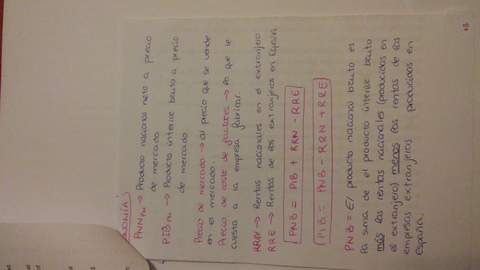 ONOMÍA:
PNNpm → Producto nacional neto a precio
de mercado
PIBpm → Producto interior bruto a precio
de mercado
Precio de mercado → al precio que se vende
en el mercado.
Precio de coste de factores → lo que le
cuesta a la empresa fabricar.
RRN → Rentas nacionales en el extranjero
RRE → Rentas de los extranjeros en España.
PNB = PiB + RRN - RRE
PiB = PNB - RRN + RRE
PNB = El producto nacional bruto es
la suma de el producto interior bruto
más las rentas nacionales (producidas en
el extranjero) menos las rentas de las
empresas extranjeras producidas en
España.